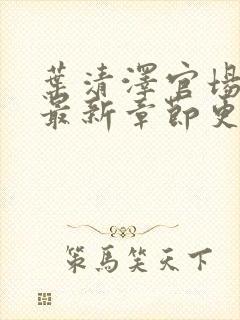 葉清澤官場
最新章節更
策馬笑天下